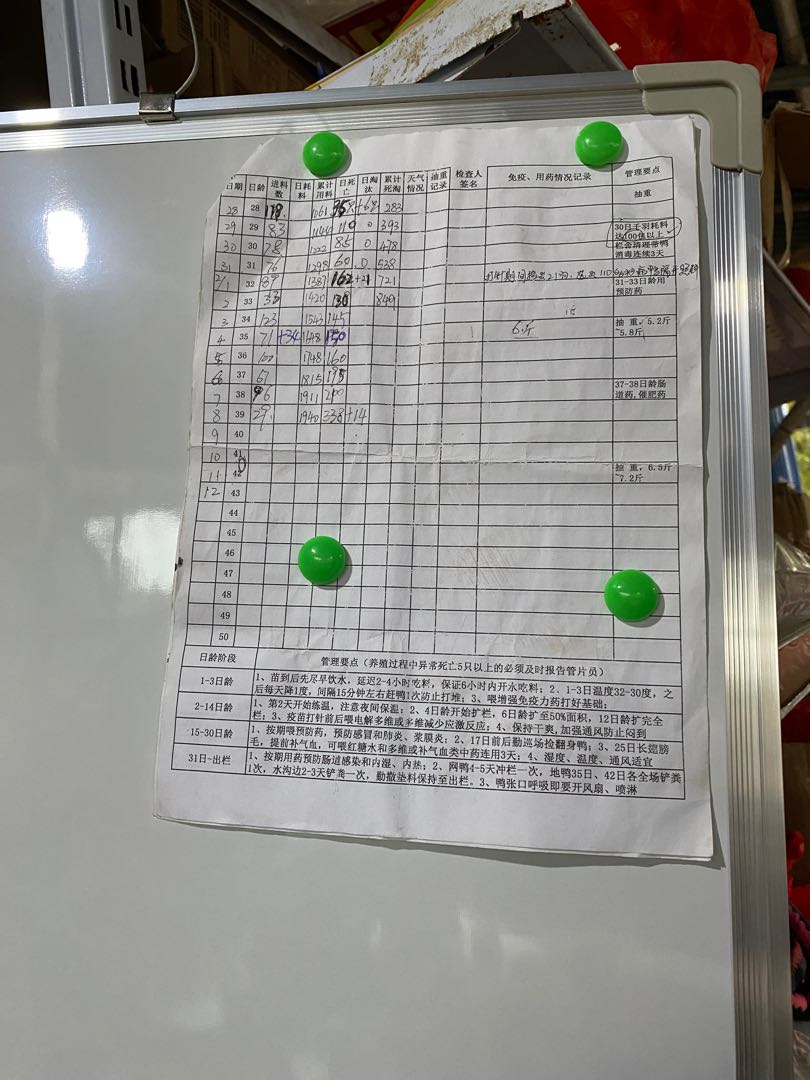 日期 日龄 进料数 日耗料 累计用料 日死亡 日淘汰 累计死淘 天气情况 抽重记录 检查人签名 免疫、用药情况记录 管理要点
抽重
28 28 1061 283
29 29 83 110 0 393 30日千羽耗料达100倍以上
30 30 78 1222 85 0 478 栏舍清理带鸭消毒连续3天
31 31 76 1298 60 0 538
2/1 32 89 1387 162+21 721 31-33日龄用预防药
2 33 33 1420 849
3 34 123 1543 145 6斤 抽 重，5.2斤~5.8斤
4 35 71 +34 1648
5 36 100 1748 160
6 37 67 1815 195
7 38 96 1911 200 37-38日龄肠道药，催肥药
8 39 29 1940 338+14
9 40
10 41
11 42 抽 重，6.5斤~7.2斤
12 43
44
45
46
47
48
49
50
日龄阶段 管理要点（养殖过程中异常死亡5只以上的必须及时报告管片员）
1-3日龄 1、苗到后先尽早饮水，延迟2-4小时吃料，保证6小时内开水吃料；2、1-3日温度32-30度，之
后每天降1度，间隔15分钟左右赶鸭1次防止打堆；3、喂增强免疫力药打好基础；
2-14日龄 1、第2天开始练温，注意夜间保温；2、4日龄开始扩栏，6日龄扩至50%面积，12日龄扩完全
栏；3、疫苗打针前后喂电解多维或多维减少应激反应；4、保持干爽，加强通风防止闷到
15-30日龄 1、按期喂预防药，预防感冒和肺炎、浆膜炎；2、17日前后勤巡场检翻身鸭；3、25日长翅膀
毛，提前补气血，可喂红糖水和多维或补气血类中药连用3天；4、湿度、温度、通风适宜
31日-出栏 1、按期用药预防肠道感染和内湿、内热；2、网鸭4-5天冲栏一次，地鸭35日、42日各全场铲粪
1次，水沟边2-3天铲粪一次，勤撒垫料保持至出栏。3、鸭张口呼吸即要开风扇、喷淋